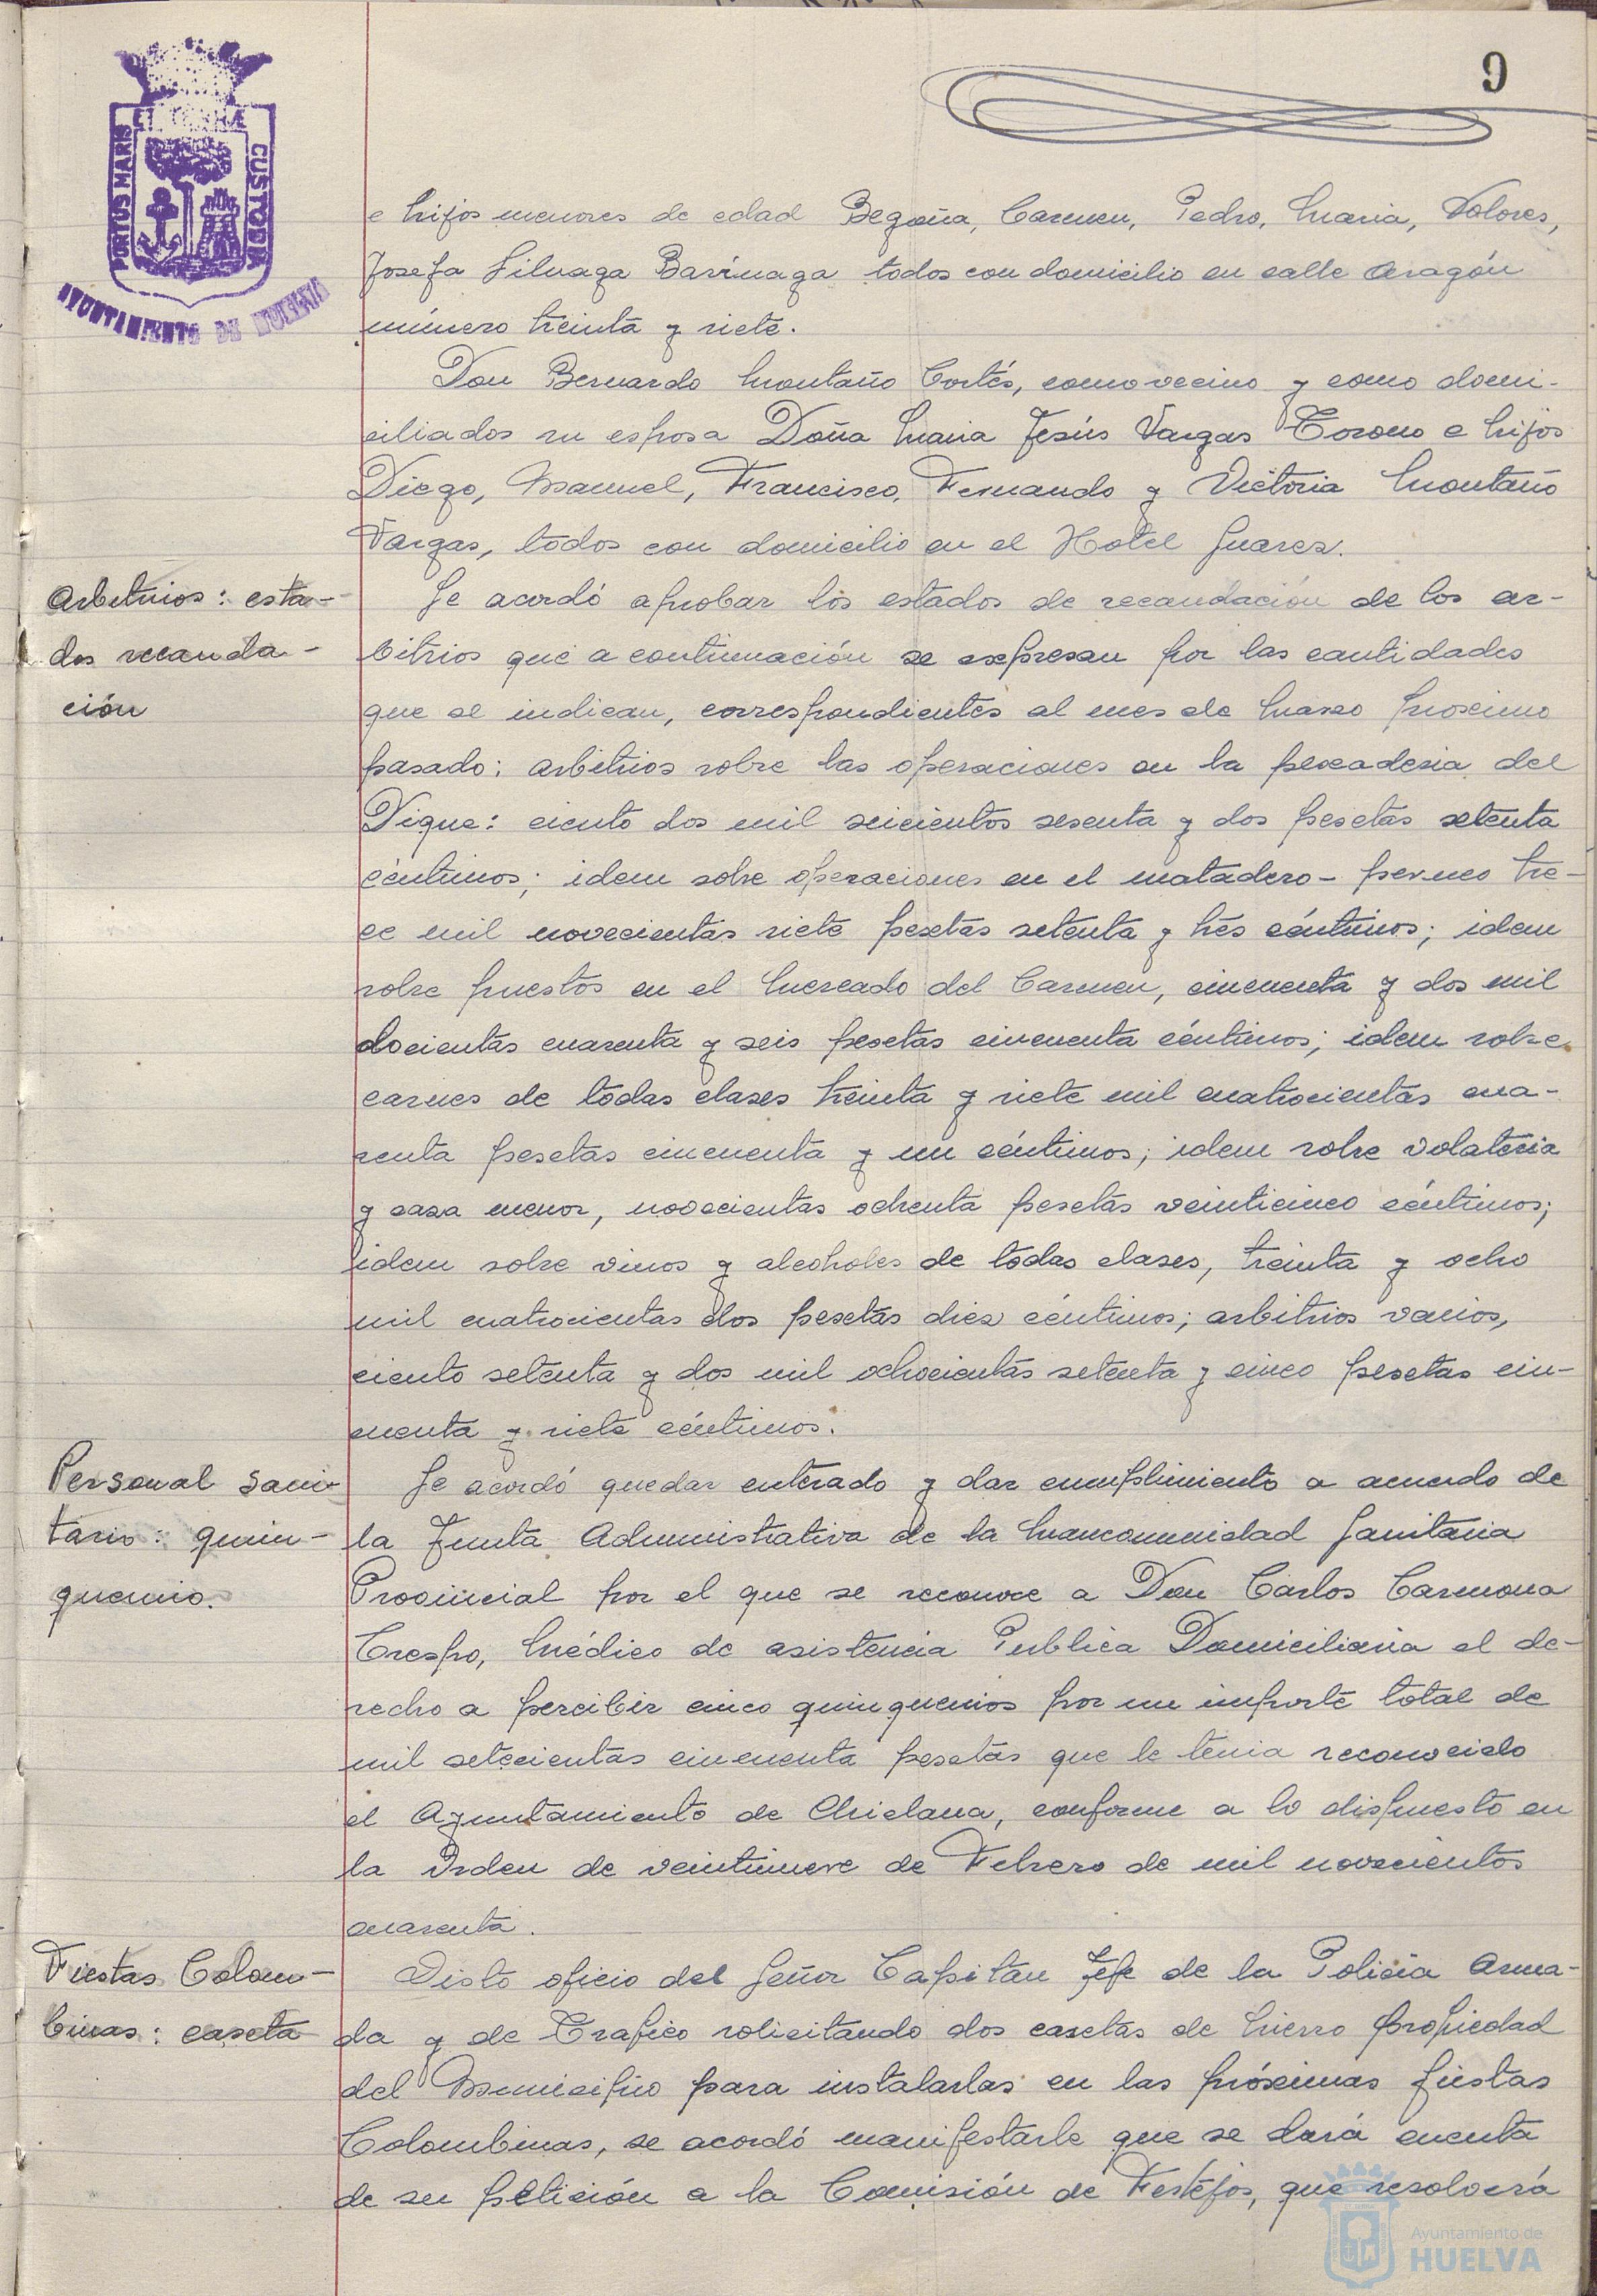 9
PORTUS MARIS ET TERRÆ CUSTODIA
AYUNTAMIENTO DE HUELVA
e hijos menores de edad Begoña, Carmen, Pedro, Maria, Dolores,
Josefa Liluaga Barinaga todos con domicilio en calle Aragón
número treinta y siete.
Don Bernardo Montaño Cortés, como vecino y como domi-
ciliados su esposa Doña Maria Jesús Vargas e hijos
Diego, Manuel, Francisco, Fernando y Victoria Montaño
Vargas, todos con domicilio en el Hotel Suarez.
Arbitrios: esta-
dos recauda-
ción
Se acordó aprobar los estados de recaudación de los ar-
bitrios que a continuación se expresan por las cantidades
que se indican, correspondientes al mes de Marzo proximo
pasado: arbitrios sobre las operaciones en la pescaderia del
Dique: ciento dos mil seicientos sesenta y dos pesetas setenta
céntimos; idem sobre operaciones en el matadero - perneo tre-
ce mil novecientas siete pesetas setenta y trés céntimos; idem
sobre puestos en el Mercado del Carmen, cincuenta y dos mil
docientas cuarenta y seis pesetas cincuenta céntimos; idem sobre
carnes de todas clases treinta y siete mil cuatrocientas cua-
renta pesetas cincuenta y un céntimos; idem sobre volateria
y caza menor, novecientas ochenta pesetas veinticinco céntimos;
idem sobre vinos y alcoholes de todas clases, treinta y ocho
mil cuatrocientas dos pesetas diez céntimos; arbitrios varios,
ciento setenta y dos mil ochocientas setenta y cinco pesetas cin-
cuenta y siete céntimos.
Personal sani-
tario: quin-
quenio.
Se acordó quedar enterado y dar cumplimiento a acuerdo de
la Junta Administrativa de la Mancomunidad Sanitaria
Provincial por el que se reconoce a Don Carlos Carmona
Crespo, Médico de asistencia Publica Domiciliaria el de-
recho a percibir cinco quinquenios por un importe total de
mil setecientas cincuenta pesetas que le tenia reconocido
el Ayuntamiento de Chiclana, conforme a lo dispuesto en
la Orden de veintinueve de Febrero de mil novecientos
cuarenta.
Fiestas Colom-
binas: caseta
Visto oficio del Señor Capitan Jefe de la Policia Arma-
da y de Trafico solicitando dos casetas de hierro propiedad
del Municipio para instalarlas en las próximas fiestas
Colombinas, se acordó manifestarle que se dará cuenta
de su petición a la Comisión de Festejos, que resolverá
Ayuntamiento de
HUELVA